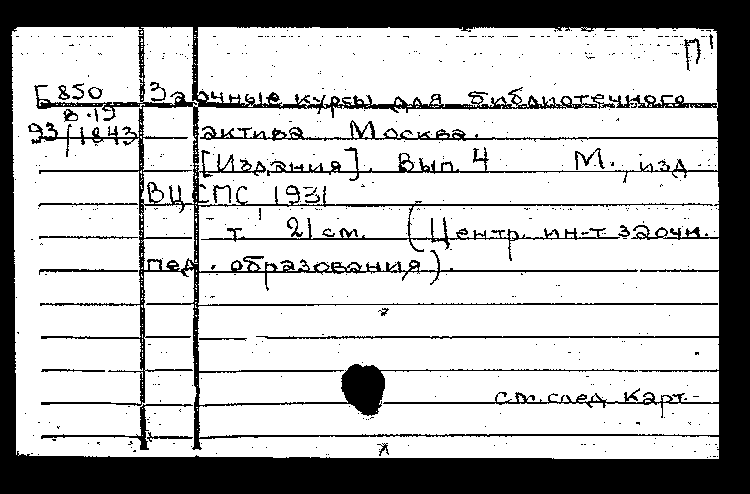 П'
Е850 Заочные курсы для библиотечного
В.19
93/1843 актива Москва.
[Издания]. Вып. 4 М., изд
ВЦСПС, 1931
т. 21 см. (Центр. ин-т заочн.
пед. образования).
см. след карт.